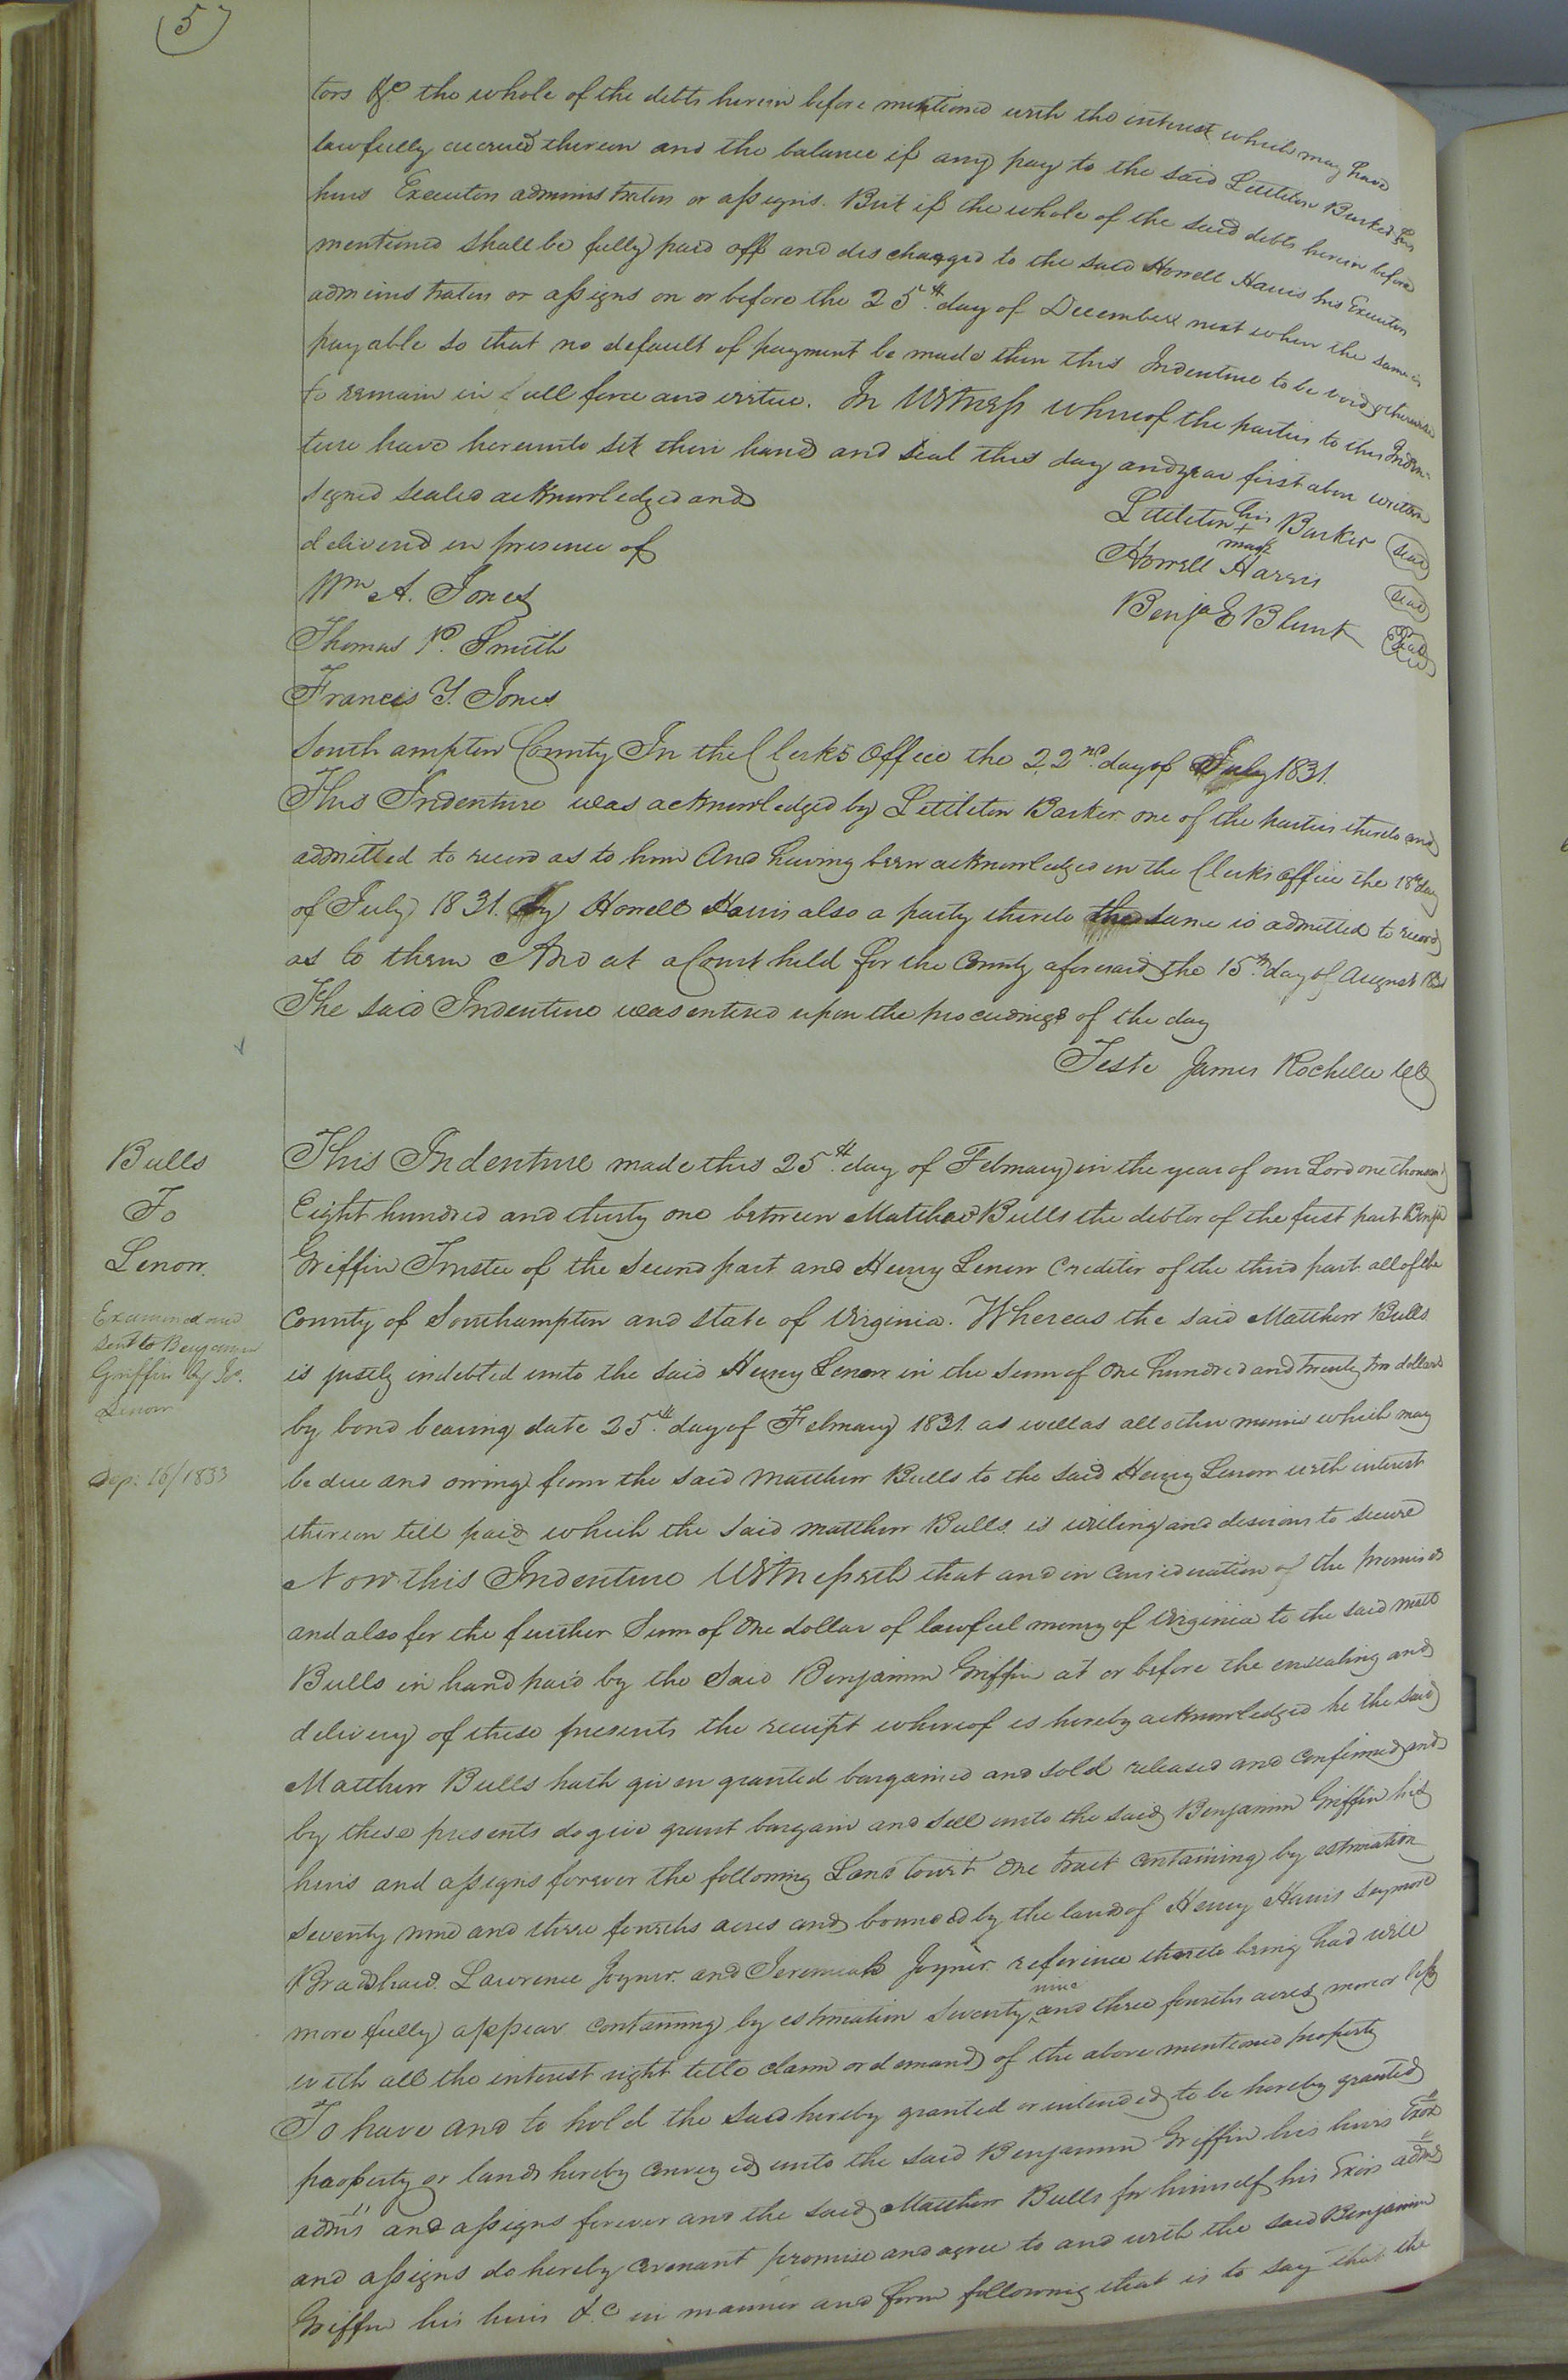 5
tors &c the whole of the debts herein before mentioned with the interest which may have
lawfully accrued thereon and the balance if any pay to the said Littleton Barker his
heirs Executors administrators or assigns. But if the whole of the said debts herein before
mentioned shall be fully paid off and discharged to the said Howell Harris his Executors
administrators or assigns on or before the 25th day of December next when the same is
payable so that no default of payment be made then this Indenture to be void otherwise
to remain in full force and virtue. In Witness whereof the parties to this Inden-
ture have hereunto set their hand and seal this day and year first above written
Signed sealed acknowledged and
delivered in presence of
Wm A. Jones
Thomas P. Smith
Francis Y. Jones
Littleton his + mark Barker seal
Howell Harris seal
Benja E Blunt Seal
Southampton County In the Clerk's Office the 22nd day of July 1831.
This Indenture was acknowledged by Littleton Barker one of the parties thereto and
admitted to record as to him And having been acknowledged in the Clerks office the 18th day
of July 1831. By Howell Harris also a party thereto the same is admitted to record
as to them And at a Court held for the County aforesaid the 15th day of August 1831
The said Indenture was entered upon the proceedings of the day
Teste James Rochelle
Bulls
To
Lenow.
Examined and
sent to Benjamin
Griffin by
Lenow
Sep: 16/1833
This Indenture made this 25th day of February in the year of our Lord one thousand
Eight hundred and thirty one between Matthew Bulls the debtor of the first part Benja
Griffin Trustee of the second part and Henry Lenow Creditor of the third part all of the
County of Southampton and state of Virginia. Whereas the said Matthew Bulls
is justly indebted unto the said Henry Lenow in the sum of One hundred and twenty two dollars
by bond bearing date 25th day of February 1831. as well as all other monies which may
be due and owing from the said Matthew Bulls to the said Henry Lenow with interest
thereon till paid which the said matthew Bulls is willing and desirous to secure
Now this Indenture Witnesseth that and in consideration of the premises
and also for the further Sum of One dollar of lawful money of Virginia to the said
Bulls in hand paid by the Said Benjamin Griffin at or before the ensealing and
delivery of these presents the receipt whereof is hereby acknowledged he the said
Matthew Bulls hath given granted bargained and sold released and confirmed and
by these presents do give grant bargain and sell unto the said Benjamin Griffin his
heirs and assigns forever the following Land towit One tract containing by estimation
seventy nine and three fourths acres and bounded by the land of Henry Harris Seymore
Bradshaw. Lawrence Joyner. and Jeremiah Joyner. reference thereto being had will
more fully appear containing by estimation seventy nine and three fourths acres more or less
with all the interest right title claim or demand of the above mentioned property
To have and to hold the said hereby granted or intended to be hereby granted
property or lands hereby conveyed unto the said Benjamin Griffin his heirs Exors
adms and assigns forever and the said Matthew Bulls for himself his Exors adms
and assigns do hereby covenant promise and agree to and with the said Benjamin
Griffin his heirs &c in manner and form following that is to say that the